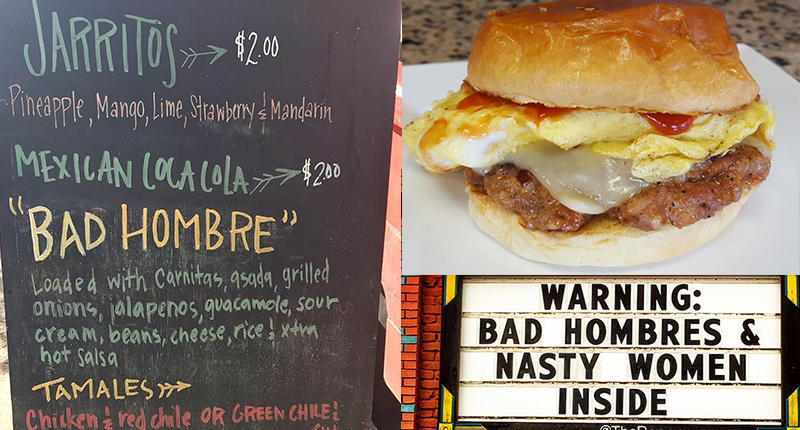 JARRITOS → $2.00
Pineapple, Mango, Lime, Strawberry & Mandarin
MEXICAN COCA COLA → $2.00
"BAD HOMBRE"
Loaded with Carnitas, asada, grilled
onions, jalapenos, guacamole, sour
cream, beans, cheese, rice & xtra
hot salsa
TAMALES
Chicken & red chile OR GREEN CHILE &
WARNING:
BAD HOMBRES &
NASTY WOMEN
INSIDE